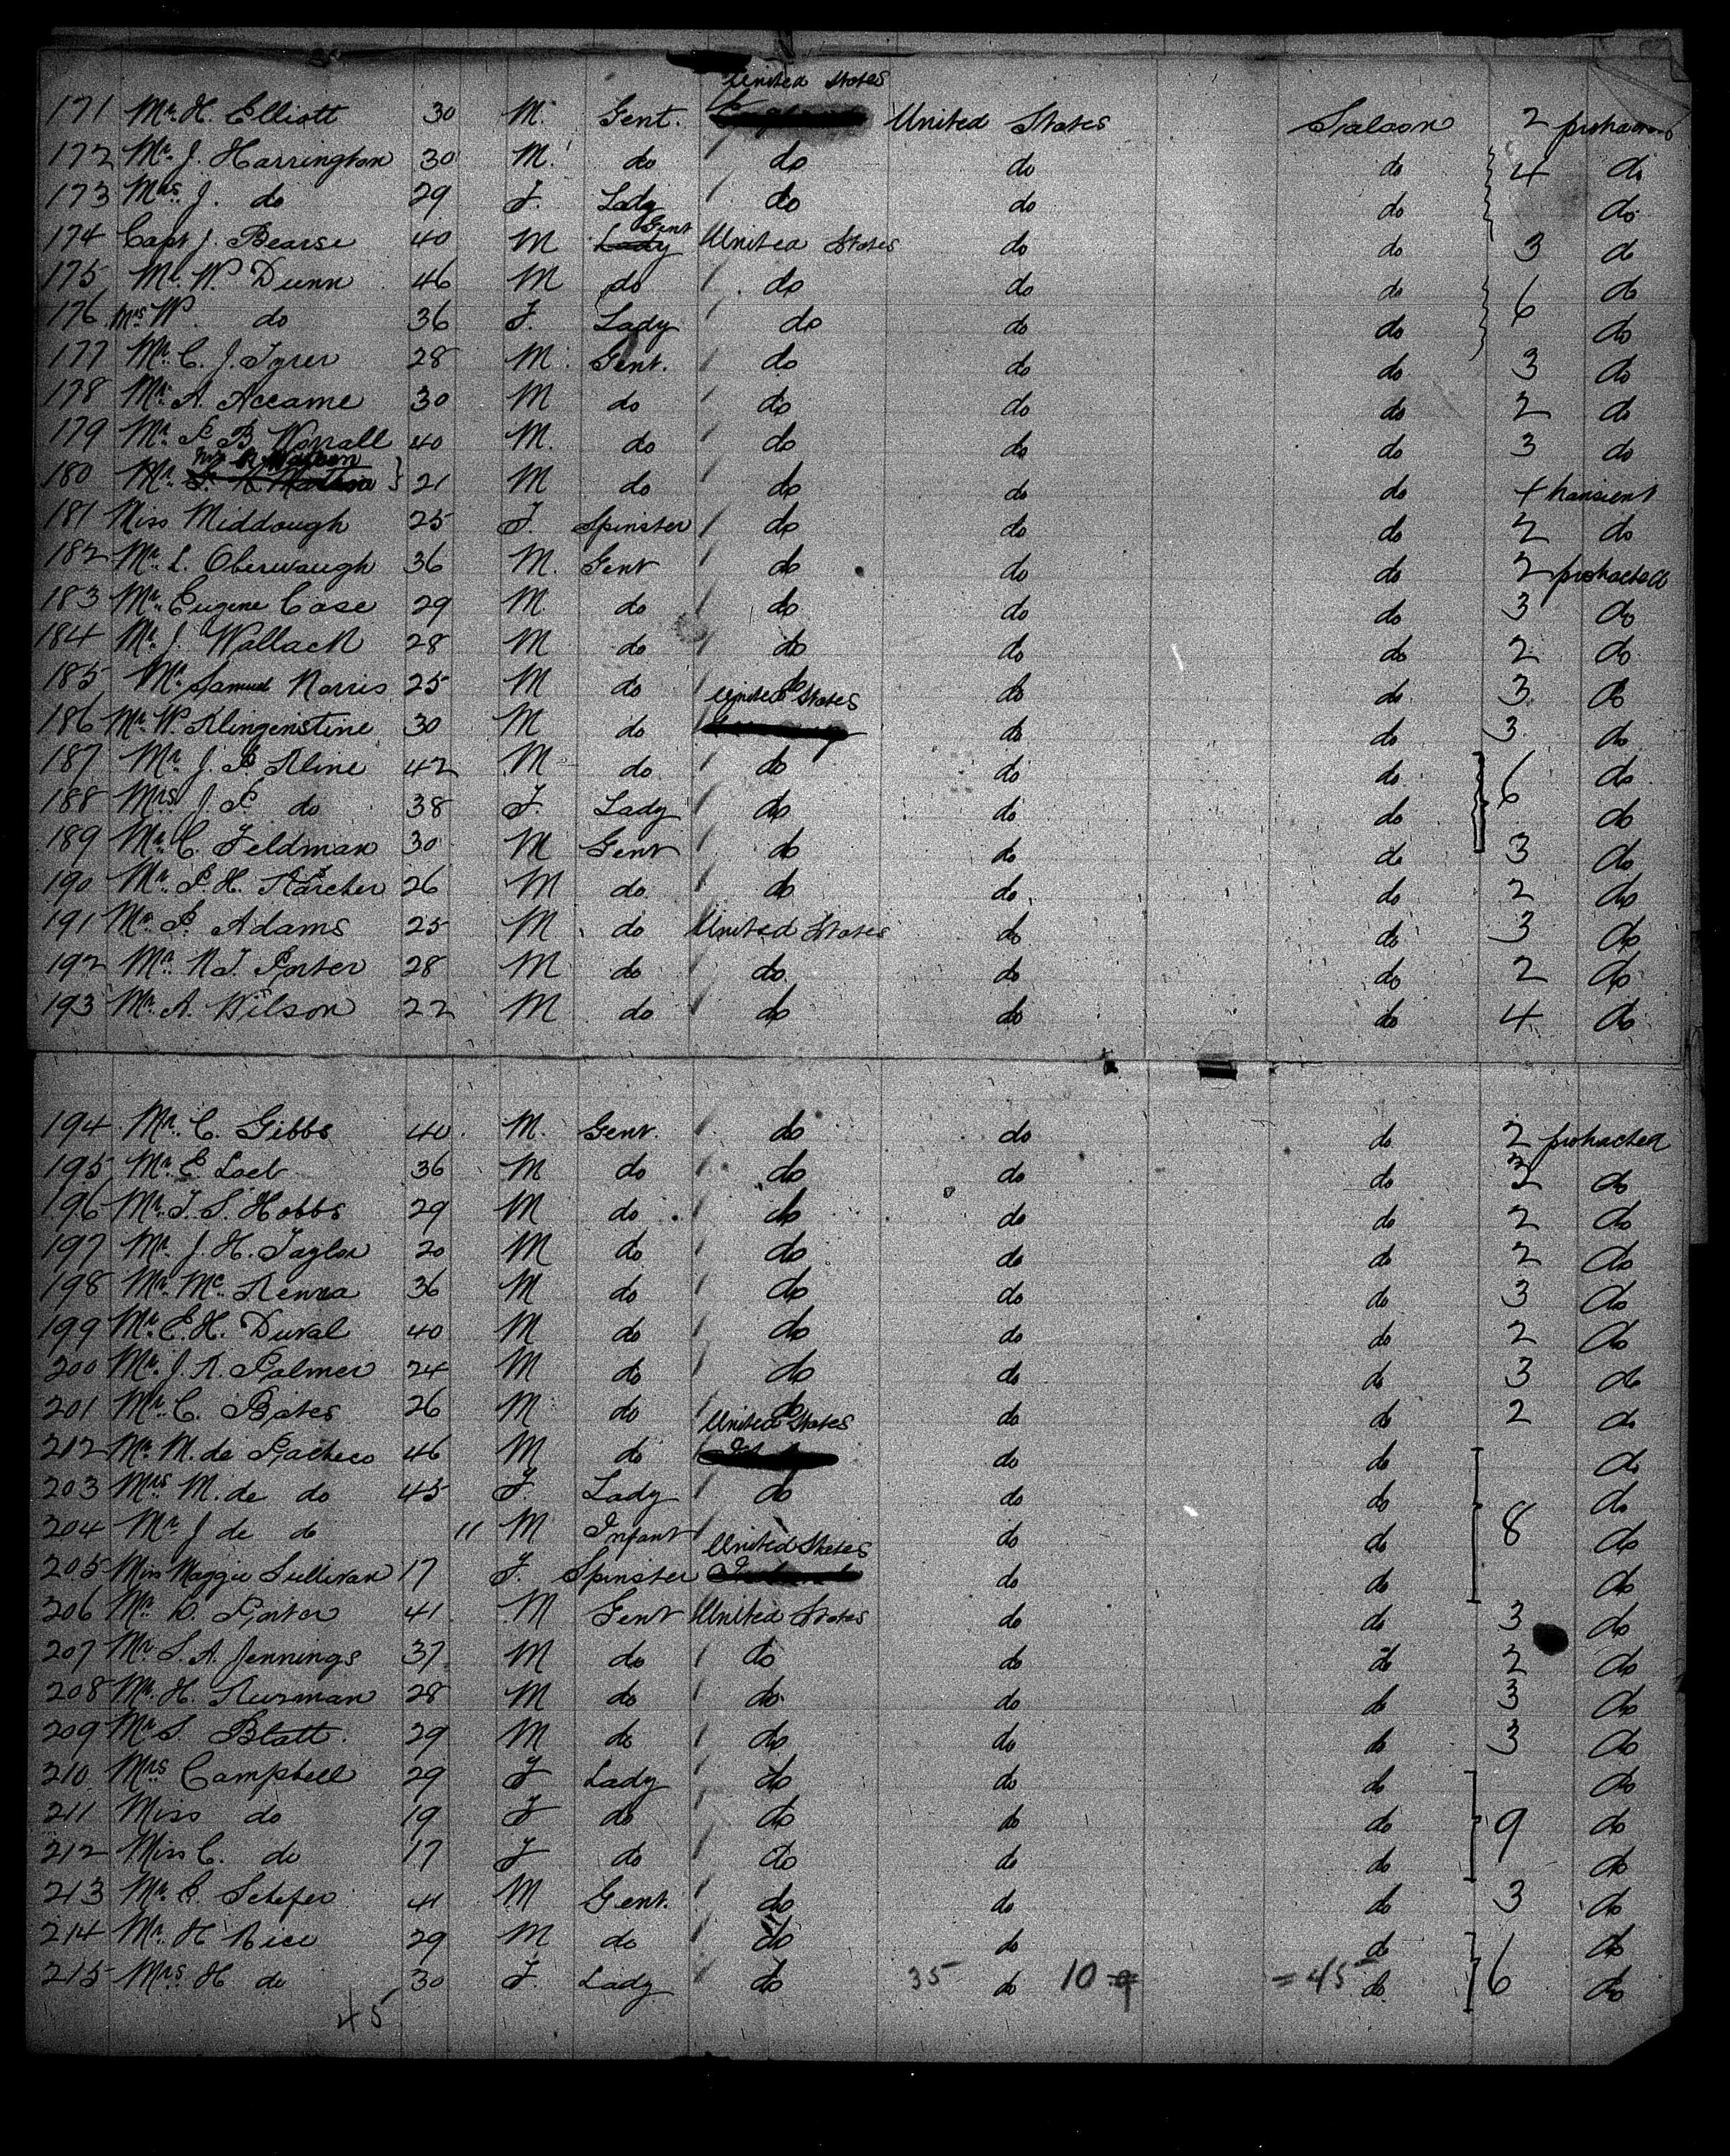 United States
171 Mr. H. Elliott 30 M. Gent. United States Saloon 2 protracted
172 Mr. J. Harrington 30 M. do do do do 4 do
173 Mrs. J. do 29 F. Lady do do do do
Gent
174 Capt J. Bearse 40 M Lady United States do do 3 do
175 Mr. W. Dunn 46 M do do do do 6 do
176 Mrs W. do 36 F. Lady do do do do
177 Mr. C. J. Tyrer 28 M. Gent. do do do 3 do
178 Mr. A. Accame 30 M do do do do 2 do
179 Mr. P. B. Worrall 40 M. do do do do 3 do
180 Mr. 21 M do do do do transient
181 Miss Middough 25 F. Spinster do do do 2 do
182 Mr. L. Oberwaugh 36 M. Gent do do do 2 protracted
183 Mr. Eugene Case 29 M. do do do do 3 do
184 Mr. J. Wallach 28 M do do do do 2 do
185 Mr. Samuel Norris 25 M do do do do 3 do
United States
186 Mr. W. Klingenstine 30 M do do do 3 do
187 Mr. J. P. Kline 42 M do do do do 6 do
188 Mrs J. P. do 38 F. Lady do do do do
189 Mr. C. Feldman 30 M Gent do do do 3 do
190 Mr. P. H. Karcher 26 M do do do do 2 do
191 Mr. P. Adams 25 M do United States do do 3 do
192 Mr. N. J. Porter 28 M do do do do 2 do
193 Mr. A. Wilson 22 M do do do do 4 do
194 Mr. C. Gibbs 40 M. Gent. do do do 2 protracted
195 Mr. E Loeb 36 M do do do do do
196 Mr. T. S. Hobbs 29 M do do do do 2 do
197 Mr. J. H. Taylor 20 M do do do do 2 do
198 Mr. Mc. Kenna 36 M do do do do 3 do
199 Mr. E. H. Duval 40 M do do do do 2 do
200 Mr. J. R. Palmer 24 M do do do do 3 do
201 Mr. C. Bates 26 M do do do do 2 do
United States
212 Mr. M. de Pacheco 46 M do do do do
203 Mrs M. de do 45 F. Lady do do do do
204 Mr. J de do 11 M Infant do do 8 do
United States
205 Miss Maggie Sullivan 17 F. Spinster do do do
206 Mr. Porter 41 M Gent United States do do 3 do
207 Mr S. A. Jennings 37 M do do do do 2 do
208 Mr. H. Kurman 28 M do do do do 3 do
209 Mr S. Blatt. 29 M do do do do 3 do
210 Mrs Campbell 29 F Lady do do do do
211 Miss do 19 F do do do do 9 do
212 Miss C. do 17 F do do do do do
213 Mr. C. Schefer 41 M Gent. do do do 3 do
214 Mr. H Rice 29 M do do do do 6 do
215 Mrs H do 30 F. Lady do 35 do 10 = 45 do do
45